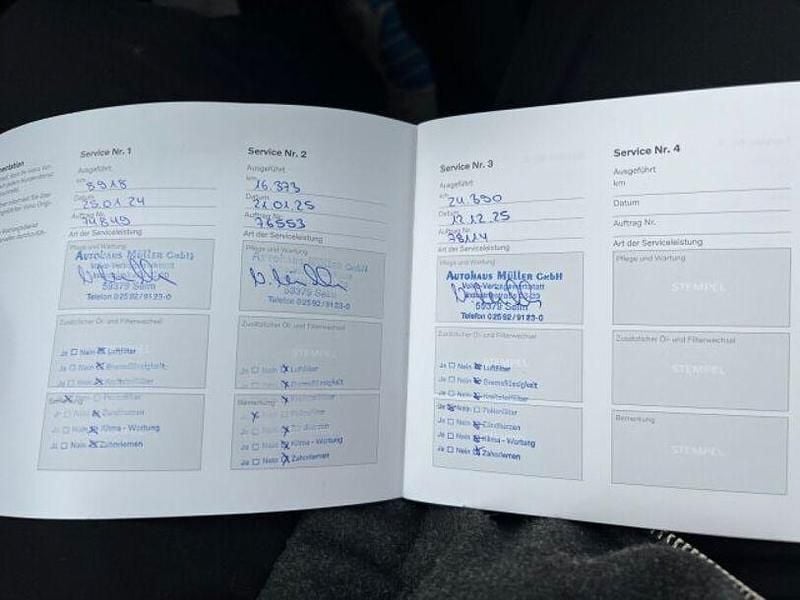 Service Nr. 1
Ausgeführt
km 8918
Datum 25.01.24
Auftrag Nr. 74849
Art der Serviceleistung
Pflege und Wartung
AUTOHAUS MÜLLER GMBH
59379 Selm
Telefon 02592/9123-0
Zusätzlicher Öl- und Filterwechsel
Ja Nein Luftfilter
Ja Nein Bremsflüssigkeit
Ja Nein Kraftstofffilter
Pollenfilter
Ja Nein Zündkerzen
Ja Nein Klima - Wartung
Ja Nein Zahnriemen
Service Nr. 2
Ausgeführt
km 16.373
Datum 21.01.25
Auftrag Nr. 76553
Art der Serviceleistung
Pflege und Wartung
AUTOHAUS MÜLLER GMBH
59379 Selm
Telefon 02592/9123-0
Zusätzlicher Öl- und Filterwechsel
STEMPEL
Ja Nein Luftfilter
Ja Nein Bremsflüssigkeit
Bemerkung
Pollenfilter
Ja Nein Zündkerzen
Ja Nein Klima - Wartung
Ja Nein Zahnriemen
Service Nr. 3
Ausgeführt
km 24.390
Datum 12.12.25
Auftrag Nr. 78114
Art der Serviceleistung
Pflege und Wartung
AUTOHAUS MÜLLER GMBH
Volvo-Vertragswerkstatt
59379 Selm
Telefon 02592/9123-0
Zusätzlicher Öl- und Filterwechsel
Ja Nein Luftfilter
Ja Nein Bremsflüssigkeit
Ja Nein Kraftstofffilter
Nein Pollenfilter
Ja Nein Zündkerzen
Ja Nein Klima - Wartung
Ja Nein Zahnriemen
Service Nr. 4
Ausgeführt
km
Datum
Auftrag Nr.
Art der Serviceleistung
Pflege und Wartung
STEMPEL
Zusätzlicher Öl- und Filterwechsel
STEMPEL
Bemerkung
STEMPEL